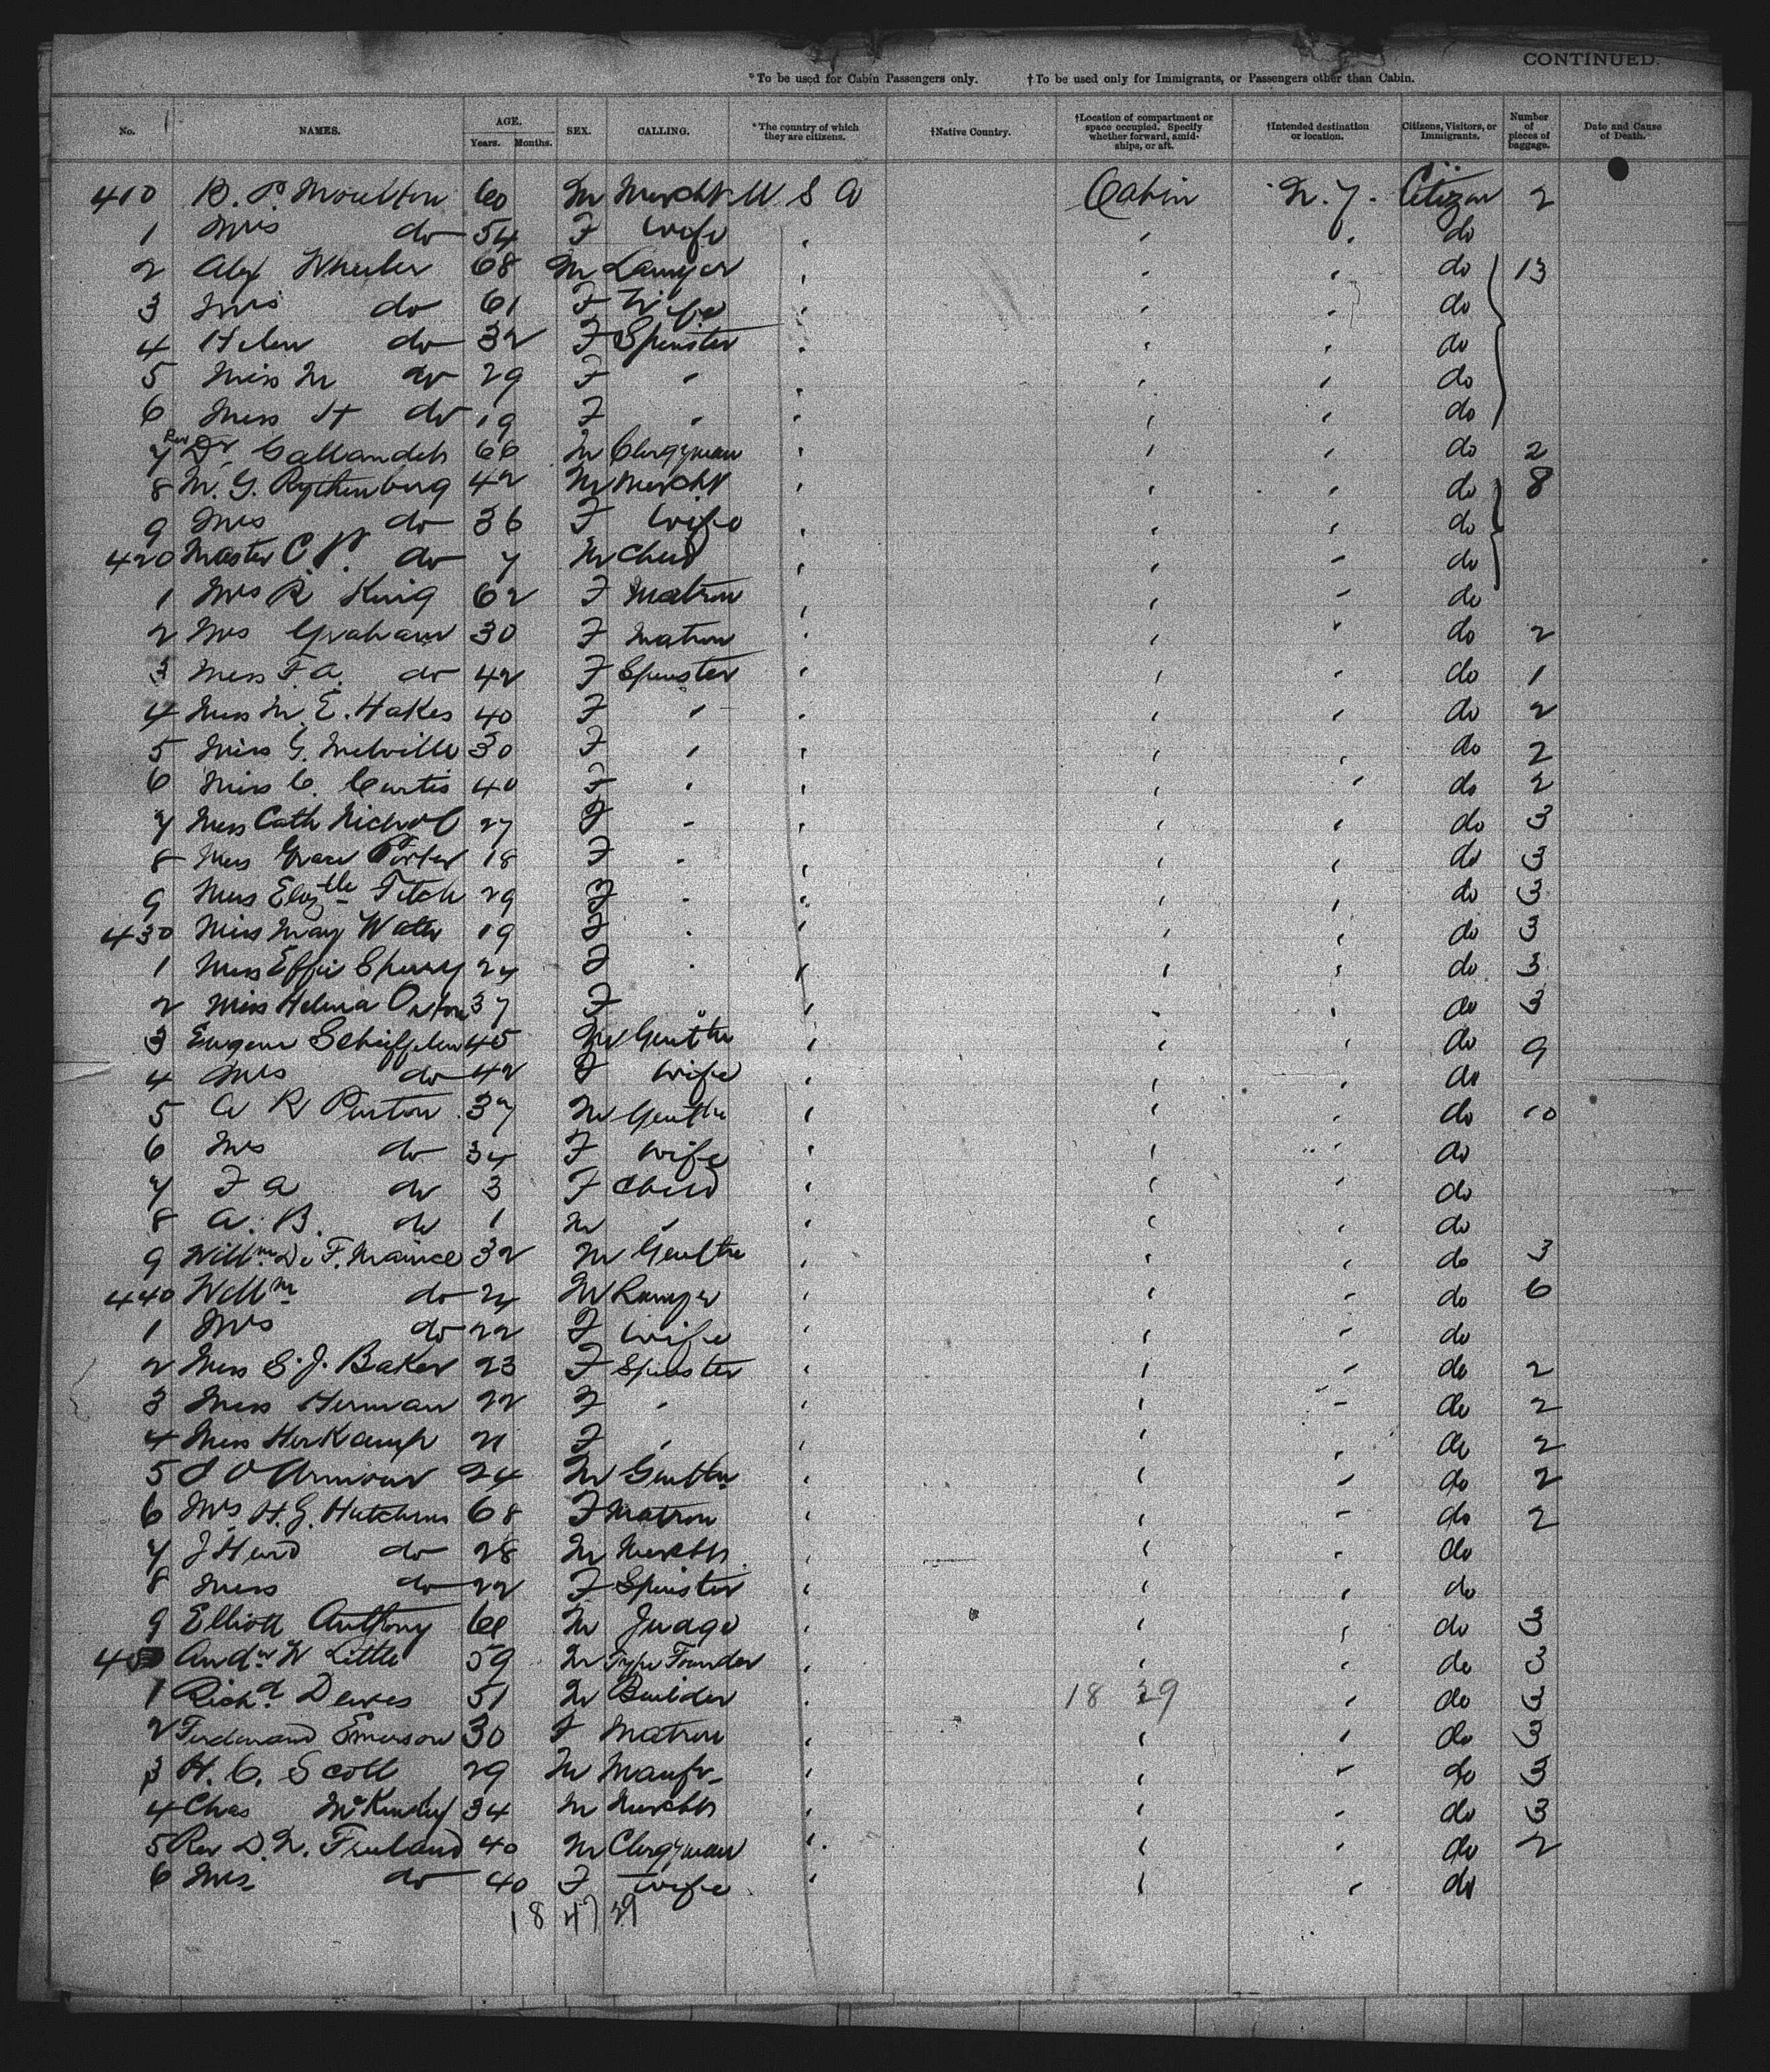 CONTINUED.
*To be used for Cabin Passengers only. †To be used only for Immigrants, or Passengers other than Cabin.
No. NAMES. AGE. Years. Months. SEX. CALLING. *The country of which they are citizens. †Native Country. †Location of compartment or space occupied. Specify whether forward, amidships, or aft. †Intended destination or location. Citizens, Visitors, or Immigrants. Number of pieces of baggage. Date and Cause of Death.
410 B. P. Moulton 60 M Mercht U S A Cabin N.Y. Citizen 2
1 Mrs do 54 F Wife ' ' ' do
2 Alex Wheeler 68 M Lawyer ' ' ' do 13
3 Mrs do 61 F Wife ' ' ' do
4 Helen do 32 F Spinster ' ' ' do
5 Miss M do 29 F ' ' ' ' do
6 Miss H do 19 F ' ' ' ' do
7 Rev Dr. Gallandeh 66 M Clergyman ' ' ' do 2
8 M. G. 42 M Mercht ' ' ' do 8
9 Mrs do 36 F Wife ' ' ' do
420 Master C. P. do 7 M Child ' ' ' do
1 Mrs R King 62 F Matron ' ' ' do
2 Mrs Graham 30 F Matron ' ' ' do 2
3 Miss F. A. do 42 F Spinster ' ' ' do 1
4 Miss M. E. Hakes 40 F ' ' ' ' do 2
5 Miss G. Melville 30 F ' ' ' ' do 2
6 Miss C. Curtis 40 F ' ' ' ' do 2
7 Miss Cath Nichol 27 F ' ' ' ' do 3
8 Miss Grace Porter 18 F ' ' ' ' do 3
9 Miss Elizth Fitch 29 F ' ' ' ' do 3
430 Miss May Water 19 F ' ' ' ' do 3
1 Miss Effie Sperry 24 F ' ' ' ' do 3
2 Miss Helena 37 F ' ' ' do 3
3 Eugene Schieffelin 45 M Gentln ' ' ' do 9
4 Mrs do 42 F Wife ' ' ' do
5 A R Purton 37 M Gentln ' ' ' do 10
6 Mrs do 34 F Wife ' ' ' do
7 F A do 3 F Child ' ' ' do
8 A. B. do 1 M ' ' ' ' do
9 Willm De F. Manice 32 M Gentln ' ' ' do 3
440 Willm do 24 M Lawyer ' ' ' do 6
1 Mrs do 22 F Wife ' ' ' do
2 Miss S. J. Baker 23 F Spinster ' ' ' do 2
3 Miss Herman 22 F ' ' ' ' do 2
4 Miss Herkamp 21 F ' ' ' ' do 2
5 J O Armour 24 M Gentln ' ' ' do 2
6 Mrs H. G. Hutchins 68 F Matron ' ' ' do 2
7 J Hurd do 28 M Merchtt ' ' ' do
8 Miss do 22 F Spinster ' ' ' do
9 Elliott Anthony M Judge ' ' ' do 3
450 Andw W Little 59 M Type Founder ' ' ' do 3
1 Richd Deeves 51 M Builder ' 18 39 ' do 3
2 Ferdinand Emerson 30 F Matron ' ' ' do 3
3 H. C. Scott 29 M Manfr ' ' ' do 3
4 Chas McKinley 34 M Merchtt ' ' ' do 3
5 Rev D. N. Freeland 40 M Clergyman ' ' ' do 2
6 Mrs do 40 F Wife ' ' ' do
18 47 29